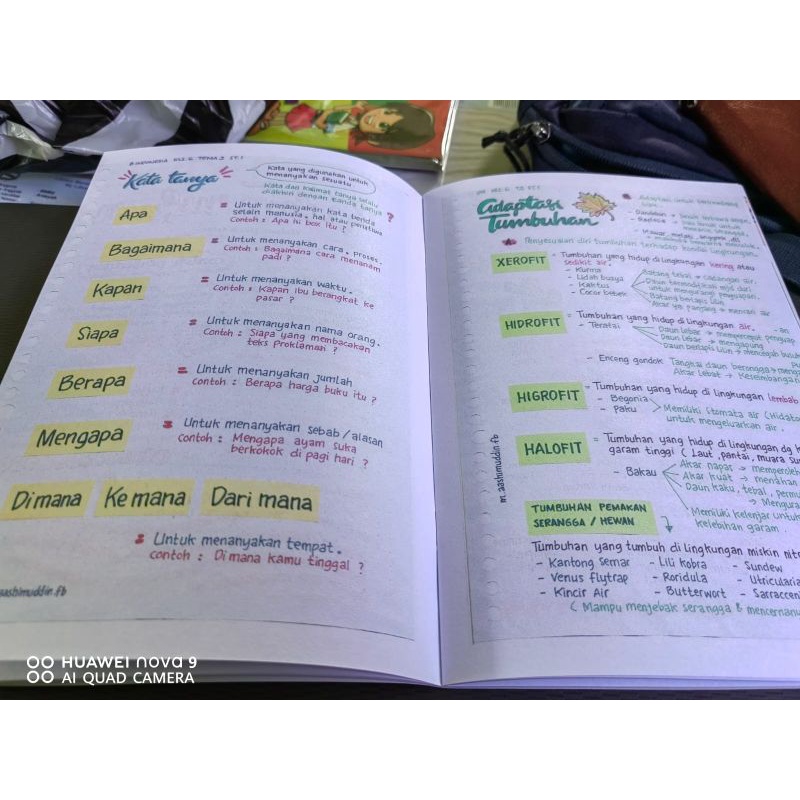 Kata tanya
Kata yang digunakan untuk
menanyakan sesuatu
Kata dan kalimat tanya selalu
diakhiri dengan tanda tanya
?
Apa
= Untuk menanyakan kata benda
selain manusia, hal atau peristiwa
Contoh : Apa isi box itu ?
Bagaimana
= Untuk menanyakan cara, proses.
Contoh : Bagaimana cara menanam
padi ?
Kapan
= Untuk menanyakan waktu.
Contoh : Kapan Ibu berangkat ke
pasar ?
Siapa
= Untuk menanyakan nama orang.
Contoh : Siapa yang membacakan
teks Proklamasi ?
Berapa
= Untuk menanyakan jumlah
contoh : Berapa harga buku itu ?
Mengapa
= Untuk menanyakan sebab / alasan
contoh : Mengapa ayam suka
berkokok di pagi hari ?
Dimana Kemana Dari mana
= Untuk menanyakan tempat.
contoh : Dimana kamu tinggal ?
aashimuddin.fb
Adaptasi
Tumbuhan
Penyesuaian diri tumbuhan terhadap kondisi lingkungan.
XEROFIT
= Tumbuhan yang hidup di lingkungan kering atau
sedikit air.
- Kurma
- Lidah buaya
- Kaktus
- Cocor bebek
Batang tebal → cadangan air.
Daun termodifikasi mjd duri
untuk mengurangi penguapan
Batang berlapis lilin
Akar yg panjang → mencari air
HIDROFIT
= Tumbuhan yang hidup di lingkungan air.
- Teratai
Daun lebar → mempercepat penguap
Daun lebar → mengapung
Daun berlapis lilin → mencegah
- Enceng gondok
Tangkai daun berongga →
Akar lebat → Keseimbangan
HIGROFIT
= Tumbuhan yang hidup di lingkungan lembab
- Begonia
- Paku
Memiliki stomata air (Hidato
untuk mengeluarkan air.
HALOFIT
= Tumbuhan yang hidup di lingkungan dg k
garam tinggi ( Laut, pantai, muara su
- Bakau
Akar napas → memperoleh
Akar kuat → menahan
Daun kaku, tebal, permu
→ Mengura
Memiliki kelenjar untuk
kelebihan garam
m.aashimuddin.fb
TUMBUHAN PEMAKAN
SERANGGA / HEWAN
Tumbuhan yang tumbuh di lingkungan miskin nitr
- Kantong Semar - Lili kobra - Sundew
- Venus flytrap - Roridula - Utricularia
- Kincir Air - Butterwort - Sarracen
( Mampu menjebak serangga & mencernanya
HUAWEI nova 9
AI QUAD CAMERA